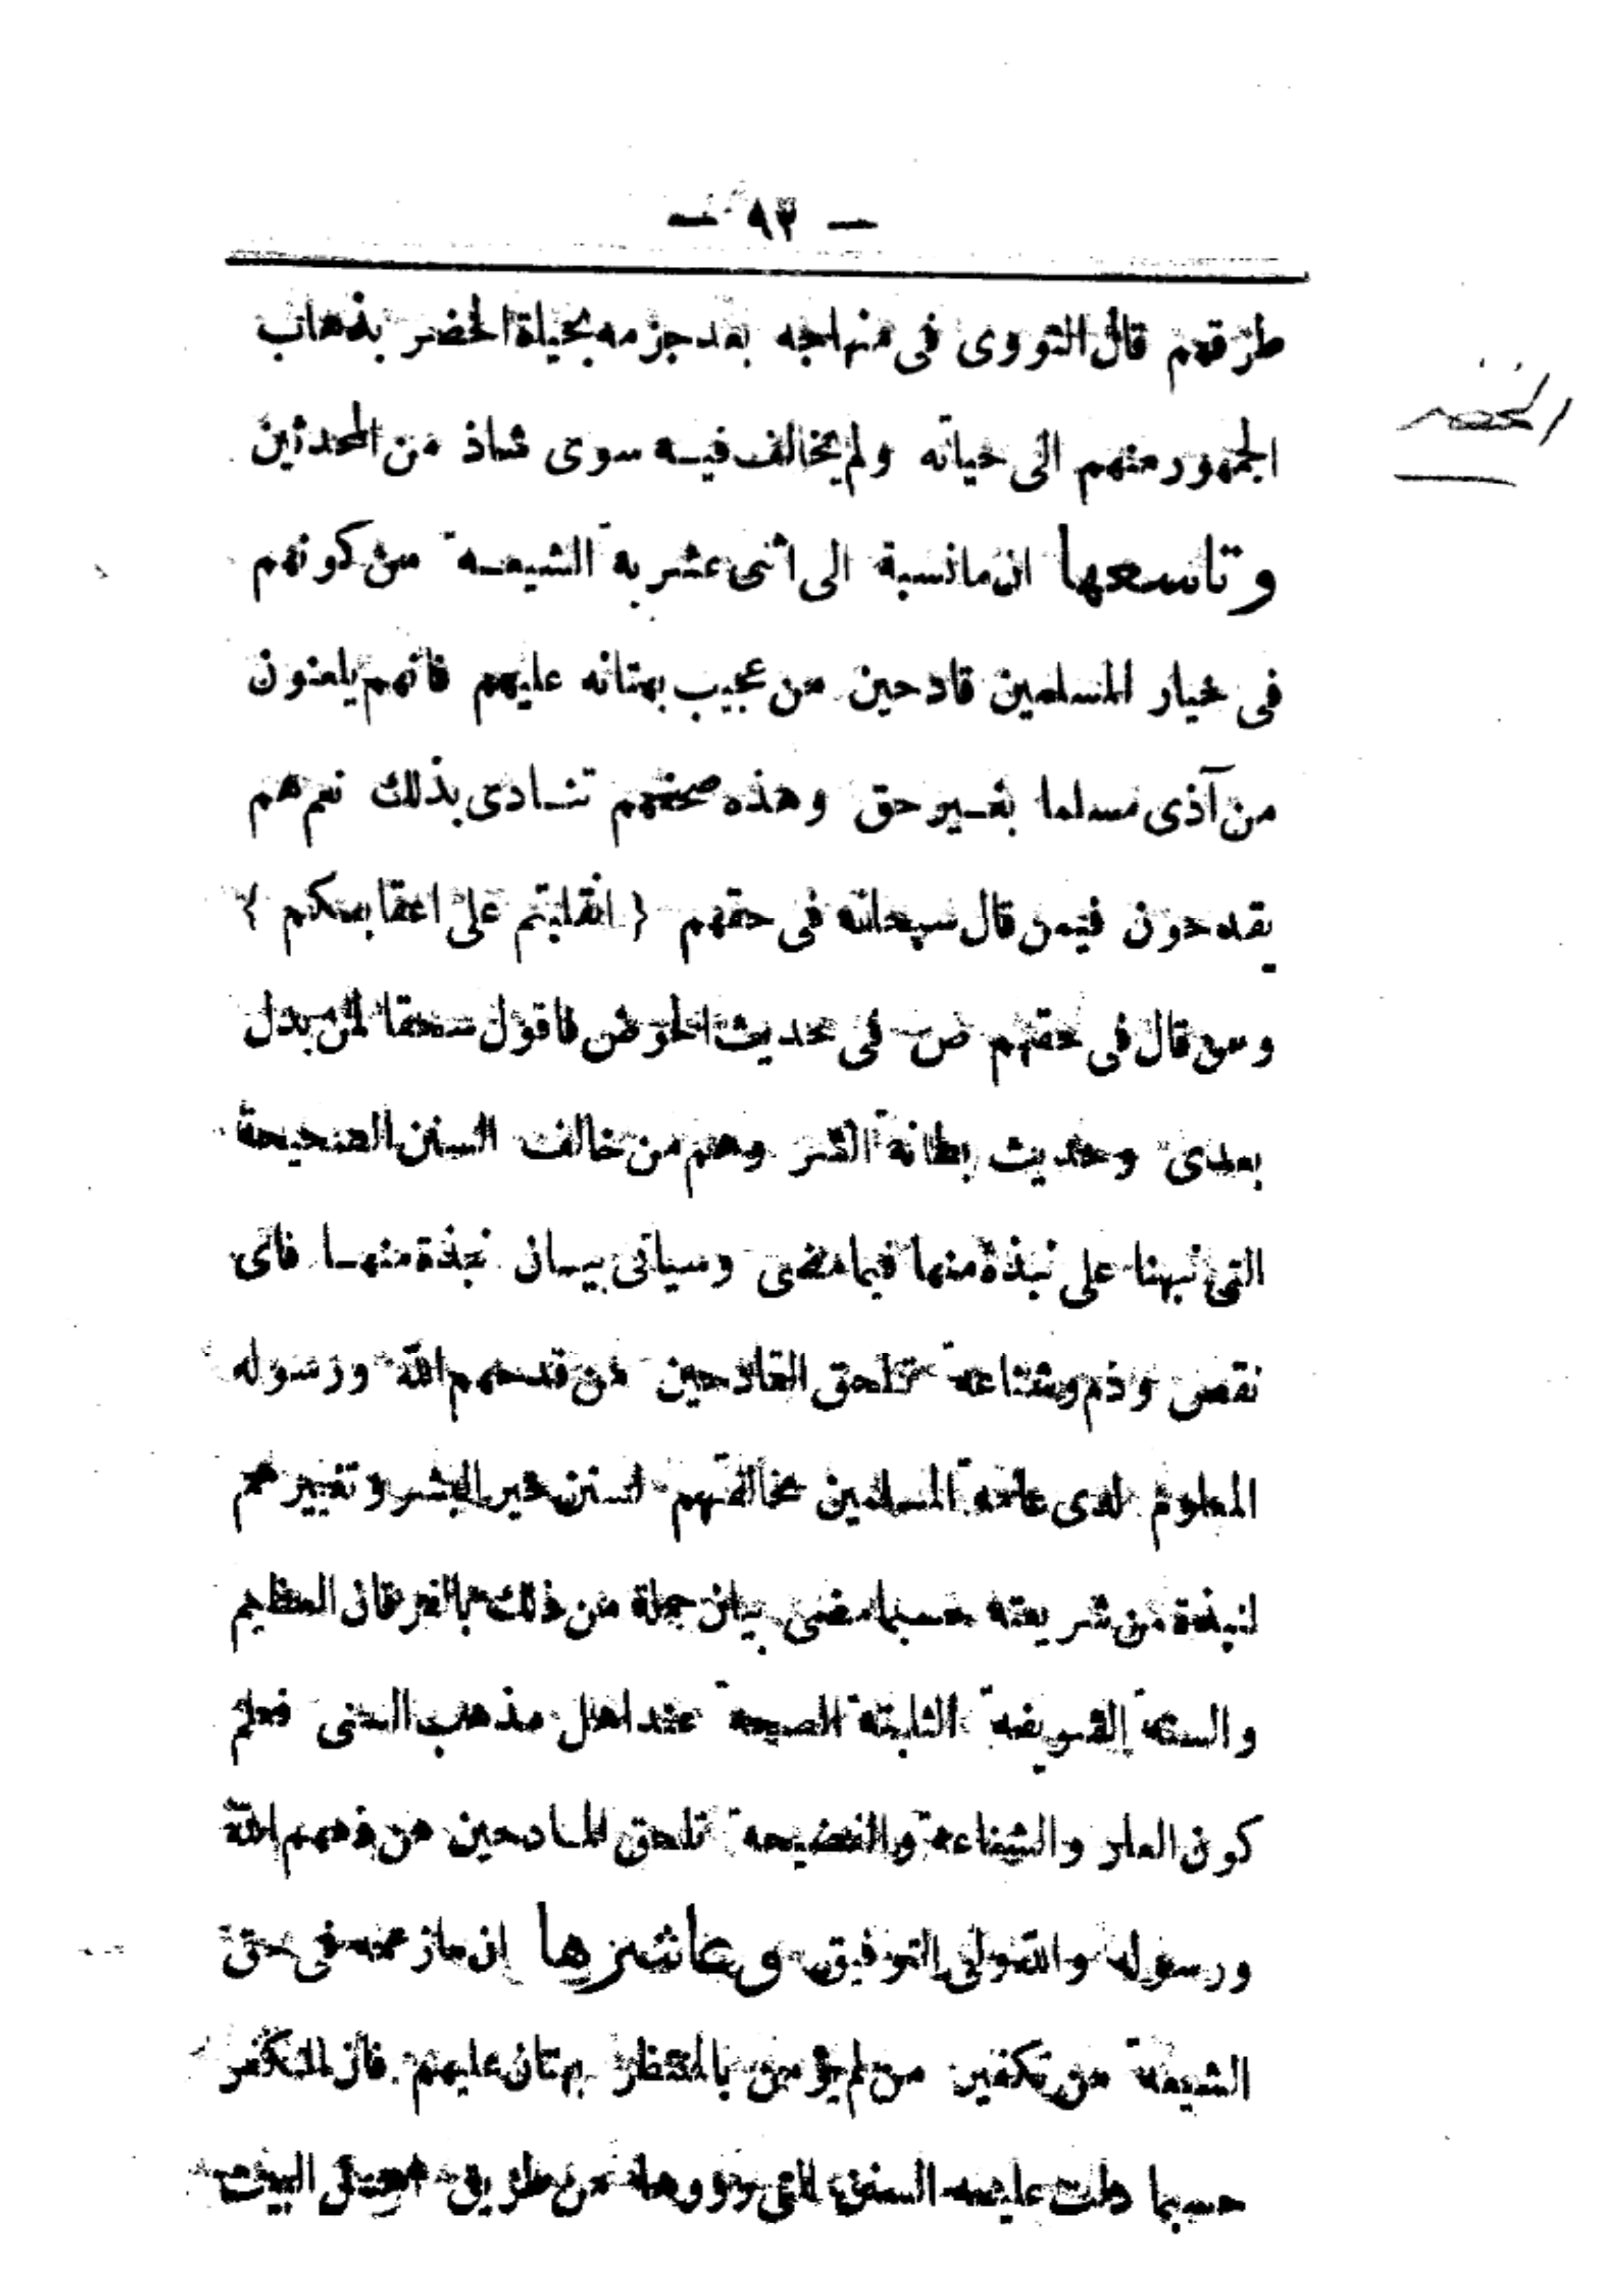 — ٩٣ —
طرقهم قال النووى فى منهاجه بعد جزمه بحياة الخضر بذهاب
الجمهور منهم الى حياته ولم يخالف فيه سوى شاذ من المحدثين
الخضر
وتاسعها ان مانسبة الى اثنى عشرية الشيعة من كونهم
فى خيار المسلمين قادحين من عجيب بهتانه عليهم فانهم يلعنون
من آذى مسلما بغير حق وهذه صحفهم تنادى بذلك نعم هم
يقدحون فيمن قال سبحانه فى حقهم { انقلبتم على اعقابكم }
ومن قال فى حقهم ص فى حديث الحوض فاقول سحقا لمن بدل
بعدى وحديث بطانة الشر وهم من خالف السنن الصحيحة
التى نبهنا على نبذة منها فيما مضى وسياتى بيان نبذة منها فاى
نقص وذم وشناعة تلحق القادحين من قدحهم الله ورسوله
المعلوم لدى عامة المسلمين مخالفتهم لسنن خير البشر وتغييرهم
لنبذة من شريعته حسبما مضى بيان جملة من ذلك بالفرقان العظيم
والسنة الشريفة الثابتة الصحيحة عند اهل مذهب السنى فعلم
كون العار والشناعة والفضيحة تلحق المادحين من ذمهم الله
ورسوله والله ولى التوفيق وعاشرها ان مازعمه فى حق
الشيعة من تكفير من لم يؤمن بالمنتظر بهتان عليهم فان المكفر
حسبما دلت عليه السنن التى رووها من طريق اهل البيت